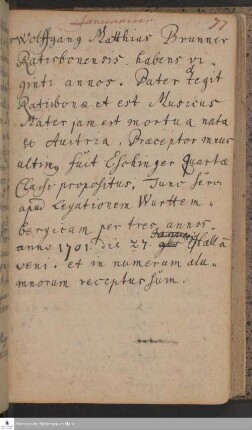 Januarius
77
Wolffgang Matthias Brunner
Ratisbonensis, habens vi-
ginti annos. Pater degit
Ratisbonæ et est Musicus
Mater jam est mortua nata
ex Austria, Præceptor meus
ultimus fuit Eschinger quartæ
Classi propositus. Tunc servi
apud Legationem Wurttem-
bergicam per tres annos.
anno 1701 die 27. Januarij Hallā
veni. et in numerum alu-
mnorum receptus sum.